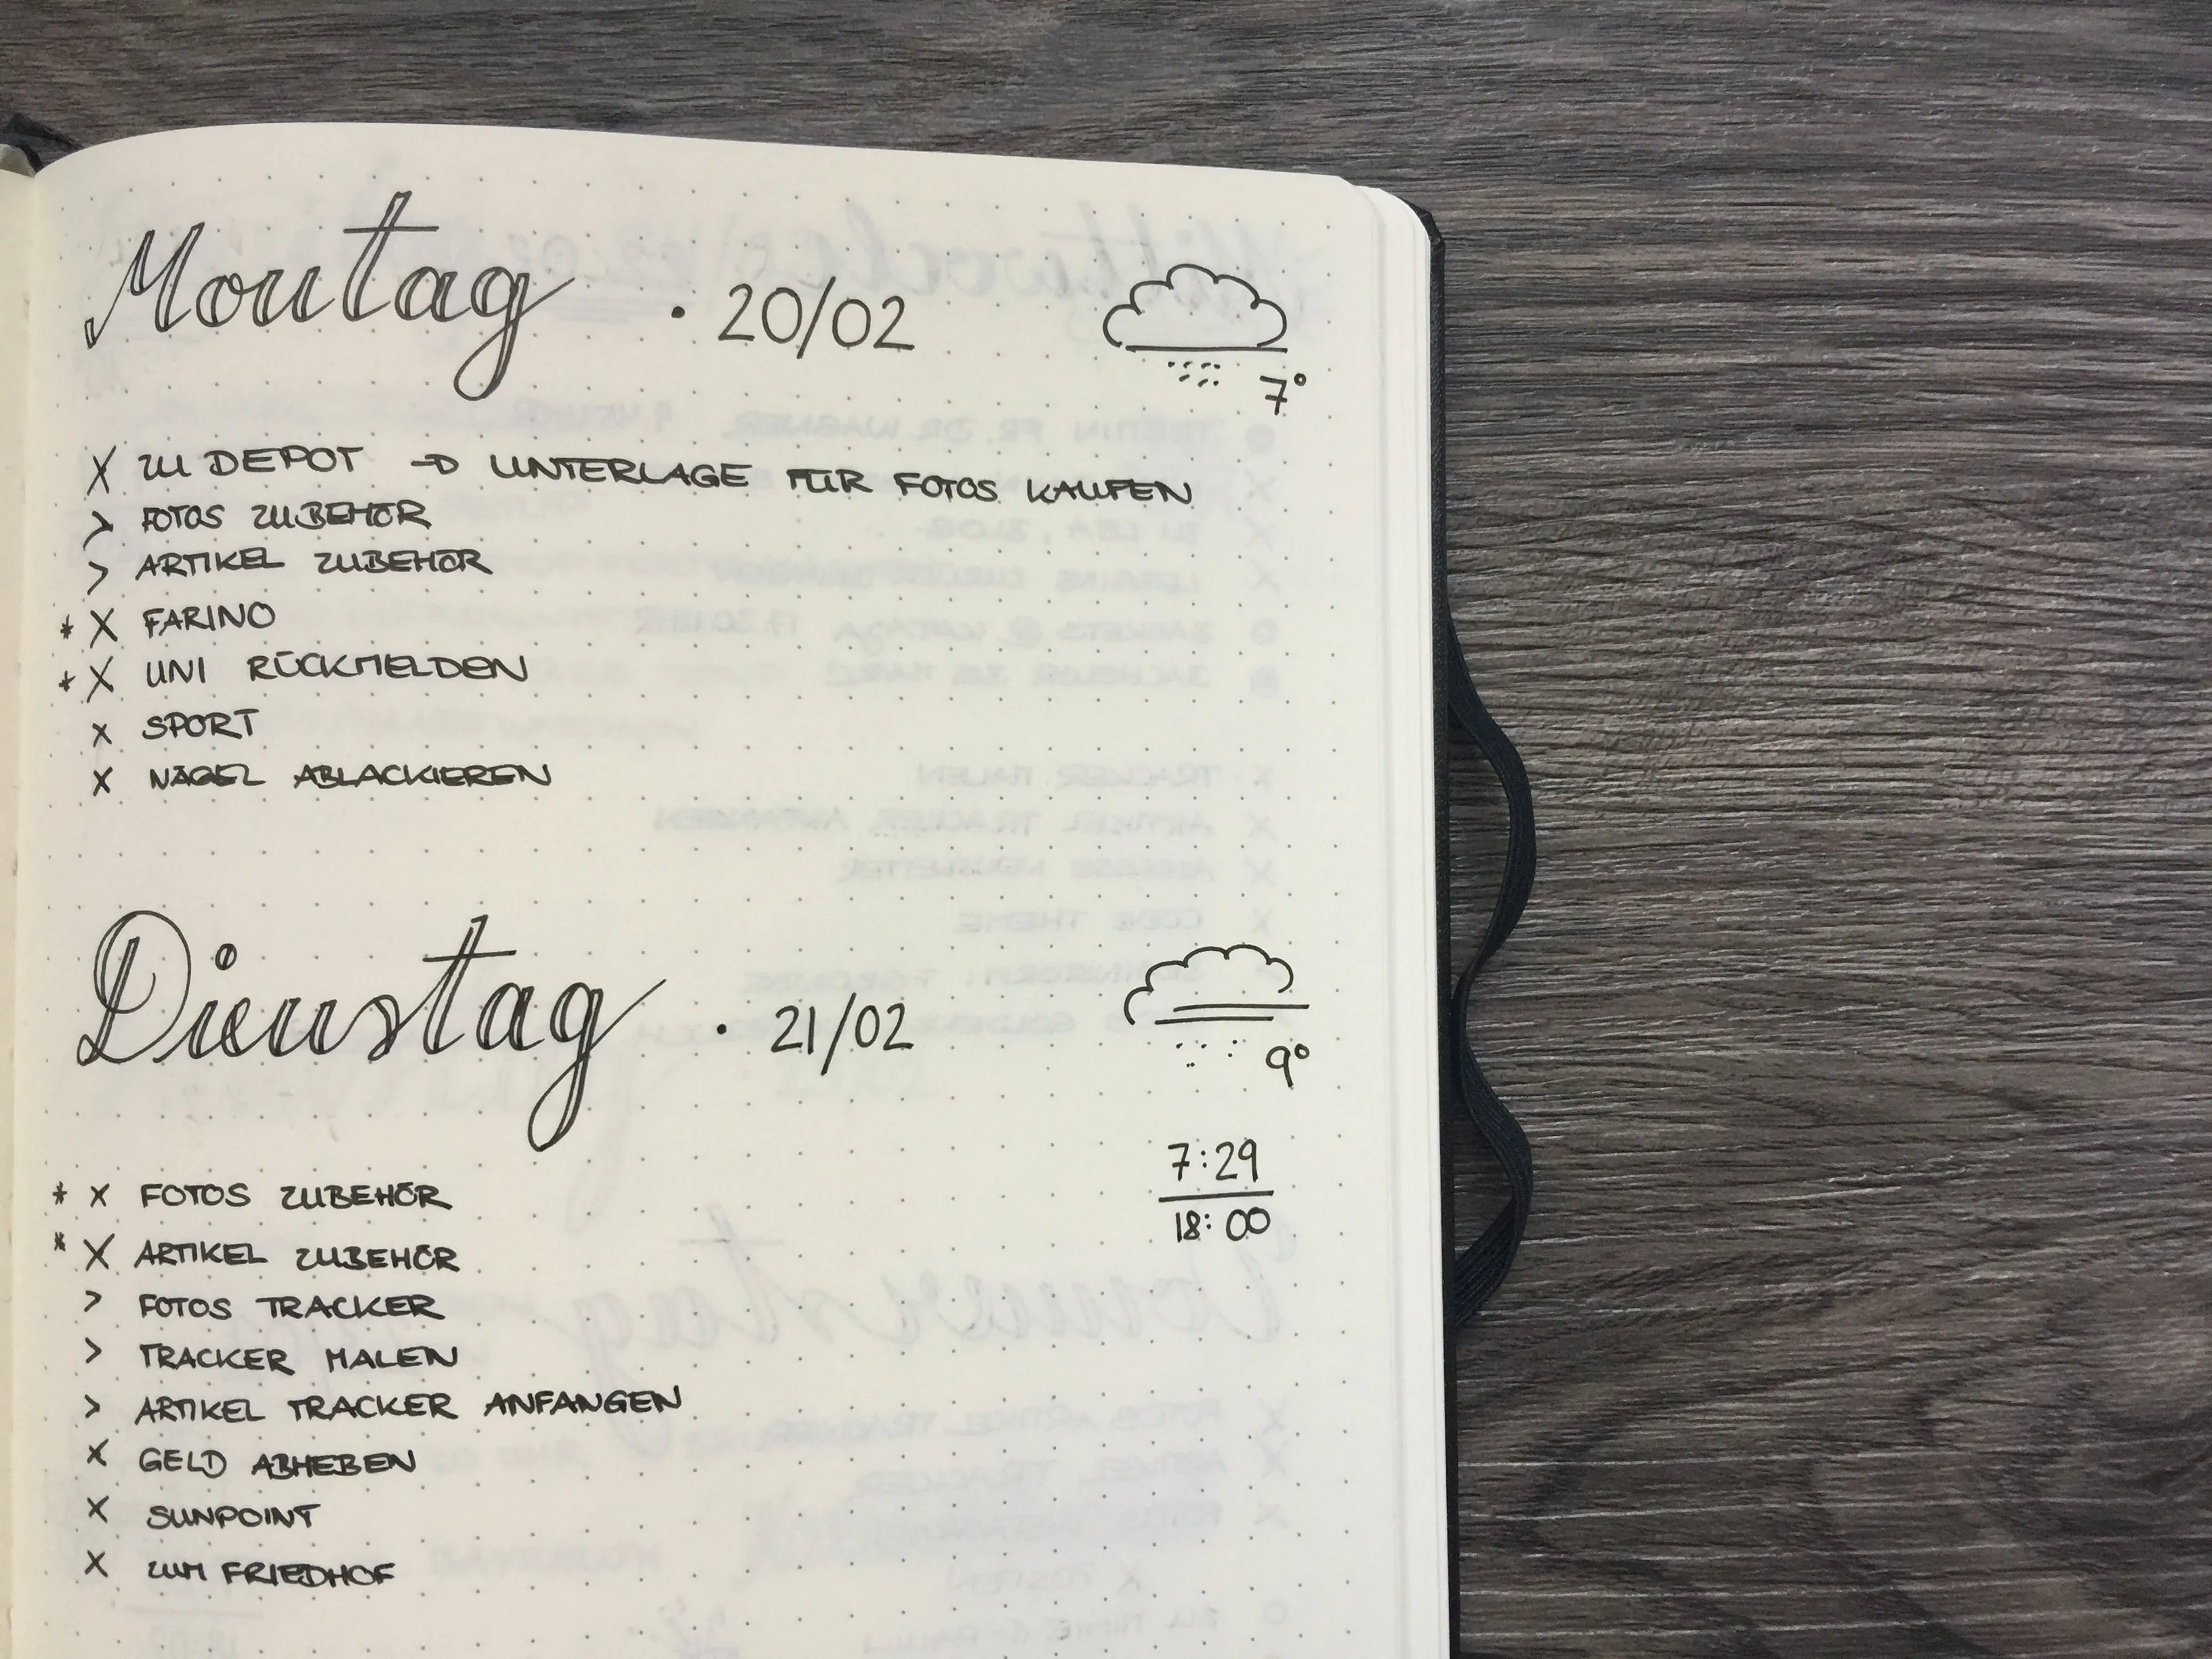 Montag · 20/02
7°
X ZU DEPOT → UNTERLAGE FÜR FOTOS KAUFEN
> FOTOS ZUBEHÖR
> ARTIKEL ZUBEHÖR
* X FARINO
* X UNI RÜCKMELDEN
X SPORT
X NÄGEL ABLACKIEREN
Dienstag · 21/02
9°
7:29
18:00
* X FOTOS ZUBEHÖR
* X ARTIKEL ZUBEHÖR
> FOTOS TRACKER
> TRACKER MALEN
> ARTIKEL TRACKER ANFANGEN
X GELD ABHEBEN
X SUNPOINT
X ZUM FRIEDHOF